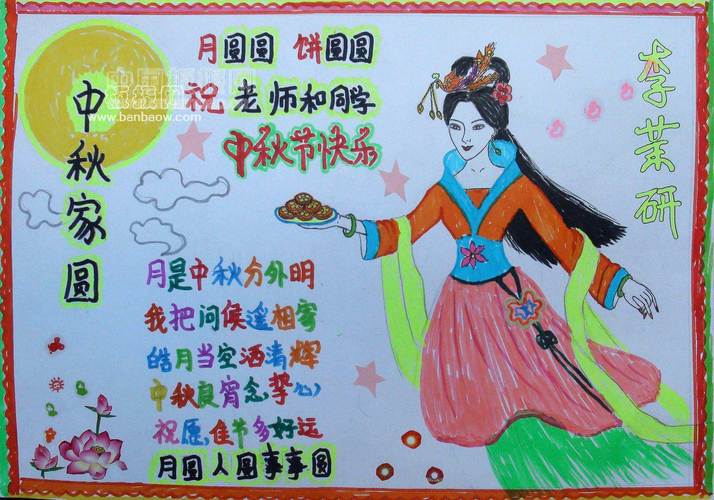 中秋家圆
www.banbaow.com
月圆圆 饼圆圆
祝老师和同学
中秋节快乐
月是中秋分外明
我把问候遥相寄
皓月当空洒清辉
中秋良宵念,挚(心)
祝愿,佳节多好运
月圆人圆事事圆
李茉研